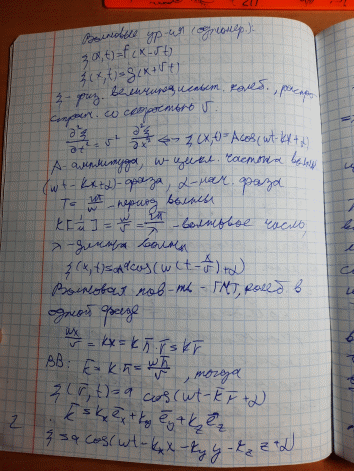 Волновые ур-ия (одномер.):
ξ(x,t)=f(x-vt)
ξ(x,t)=g(x+vt)
ξ - физ. величина, испыт. колеб., распро-
стран. со скоростью v.
∂²ξ/∂t² = v² ∂²ξ/∂x² <=> ξ(x,t)=Acos(wt-kx+α)
A-амплитуда, w-цикл. частота волны
(wt-kx+α)-фаза, α-нач. фаза
T= 2π/w -период волны
k[1/м] = w/v = 2π/λ -волновое число,
λ-длина волны
ξ(x,t)=acos(w(t-x/v)+α)
Волновая пов-ть - ГМТ, колеб в
одной фазе
wx/v = kx = k n̄·r̄ = k̄r̄
ВВ: k̄ = k·n̄ = wn̄/v, тогда
ξ(r̄,t)=a cos(wt-k̄r̄+α)
k̄=kₓēₓ+k_yē_y+k_zē_z
ξ=a cos(wt-kₓx-k_yy-k_zz+α)
2